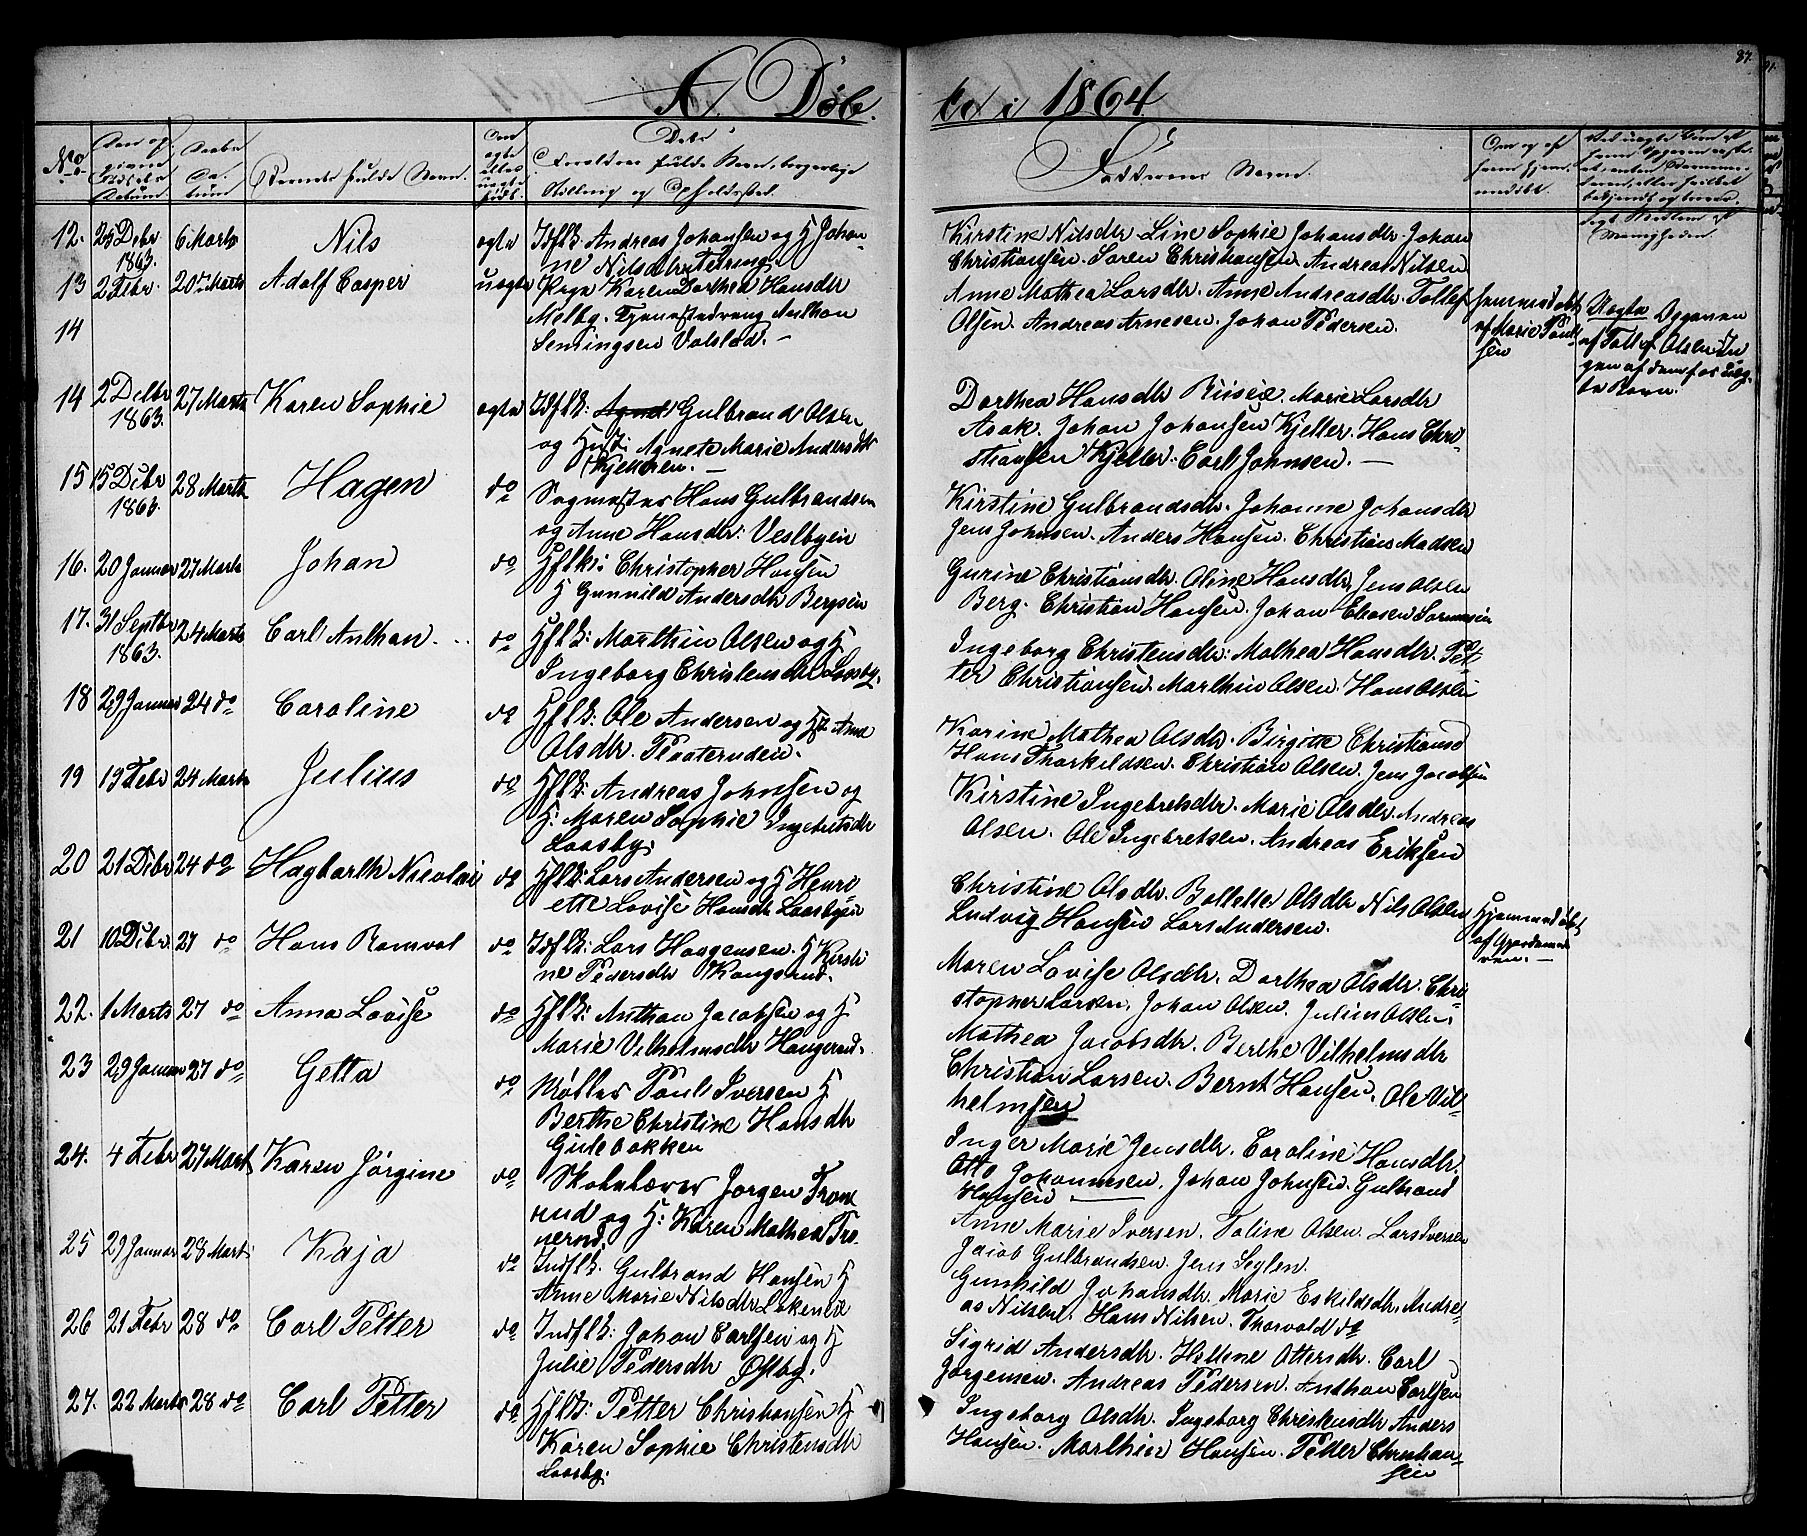 87.
A. Døb- te i 1864
No
Aar og
given
Fødsels
Datum
Daabs
Da-
tum
Barnets fulde Navn.
Om
ægte
eller
uægte
født.
Dets
Forældres fulde Navn, borgerlige
Stilling og Opholdssted.
Faddernes Navn.
Om og af
hvem hjem-
medøbt.
12. 25 Debr 1863. 6 Marts Nils ægte Idflk: Andreas Johansen og H Johan-
ne Nilsdtr Tetring
Kirstine Nilsdtr. Line Sophie Johansdtr. Johan
Christiansen. Søren Christiansen. Andreas Nilsen
13 2 Febr. 20 Marts Adolf Casper uægte Pige Karen Dorthea Hansdtr
Melby. Tjenestedreng Anthon
Semingsen Valstad. -
Anne Mathea Larsdtr. Anne Andreasdtr. Tollef
Olsen. Andreas Arnesen. Johan Pedersen.
hjemmedøbt
af Marie Poul-
sen
Uægte Opgaven
af Tollef Olsen In-
gen af dem før uæg-
te Børn.
14
14 2 Debr 1863. 27 Marts Karen Sophie ægte Idflk: Agnet Gulbrand Olsen
og Hust: Agnete Marie Andersdtr
Kjelleren. -
Dorthea Hansdtr Riiser. Marie Larsdtr
Asak. Johan Johansen Kjeller. Hans Chri-
stiansen Kjeller. Carl Johnsen. -
15 15 Debr 1863. 28 Marts Hagen do Sagmester Hans Gulbrandsen
og Anne Hansdtr: Veslbyen
Kirstine Gulbrandsdtr. Johanne Johansdtr
Jens Johnsen. Anders Hansen. Christian Madsen
16. 20 Januar 27 Marts Johan do Hflk: Christopher Hansen
H Gunnild Andersdtr Bergsen
Gurine Christiansdtr. Oline Hansdtr. Jens Olsen
Berg. Christian Hansen. Johan Eliasen
17. 31 Septbr 1863. 24 Marts Carl Anthon. do Hflk: Marthin Olsen og H
Ingeborg Christensdtr Laasby.
Ingeborg Christensdtr: Mathea Hansdtr. Pet-
ter Christiansen. Marthin Olsen. Hans Olsen
18 29 Januar 24 do Caroline do Hflk: Ole Andersen og H Anne
Olsdtr. Plaateruden.
Karine Mathea Olsdtr. Birgitte Christiansd
Hans Thorkildsen. Christian Olsen. Jens Jacobsen
19 19 Febr 24 Marts Julius do Hflk: Andreas Johnsen og
H: Maren Sophie Ingebretsdtr
Laasby.
Kirstine Ingebretsdtr. Marie Olsdtr. Andreas
Olsen. Ole Ingebretsen. Andreas Eriksen
20 21 Debr 24 do Hagbarth Nicolai do Hflk: Lars Andersen og H Henri
ette Lovise Hansdtr Laasbyen
Christine Olsdtr. Bollette Olsdtr Nils Olsen
Ludvig Hansen Lars Andersen.
Hjemmedøbt
af Gjordemod-
ren. -
21 10 Debr. 27 do Hans Ramval do Idflk: Lars Haagensen. H Kirsti-
ne Pedersdtr Kongsrud.
Maren Lovise Olsdtr. Dorthea Olsdtr. Chri-
stopher Larsen. Johan Olsen. Julius Olsen.
22. 1 Marts 27 do Anna Lovise do Hflk: Anthon Jacobsen og H
Marie Vilhelmsdtr Haugerud.
Mathea Jacobsdtr. Berthe Vilhelmsdtr
Christian Larsen. Bernt Hansen. Ole Vil-
helmsen
23 29 Januar 27 do Getta do Møller Paul Iversen H
Berthe Christine Hansdtr
Gudebakken
Inger Marie Jensdtr. Caroline Hansdtr.
Otto Johannesen. Johan Johnsen. Gulbrand
Hansen
24. 4 Febr 27 Mart Karen Jørgine do Skolelærer Jørgen Tron
rud og H: Karen Mathea Tro-
nerud
Anne Marie Iversen. Taline Olsen. Lars Iversen
Jacob Gulbrandsen. Jens Seglen.
25 29 Januar 28 Mart Kaja do Indflk: Gulbrand Hansen H
Anne Marie Nilsdtr Løkener
Gunhild Johansdtr. Marie Eskildsdtr. Andre-
as Nilsen. Hans Nilsen. Thorvald do
26 21 Febr 28 do Carl Petter do Indflk: Johan Carlsen og H
Julie Pedersdtr Østby.
Sigrid Andersdtr. Hellene Ottersdtr. Carl
Jørgensen. Andreas Pedersen. Anthon Carlsen
27. 22 Marts 28 do Carl Petter do Hflk: Petter Christiansen H
Karen Sophie Christensdtr
Laasby.
Ingeborg Olsdtr. Ingeborg Christensdtr Anders
Hansen. Marthin Hansen. Petter Christian-
sen